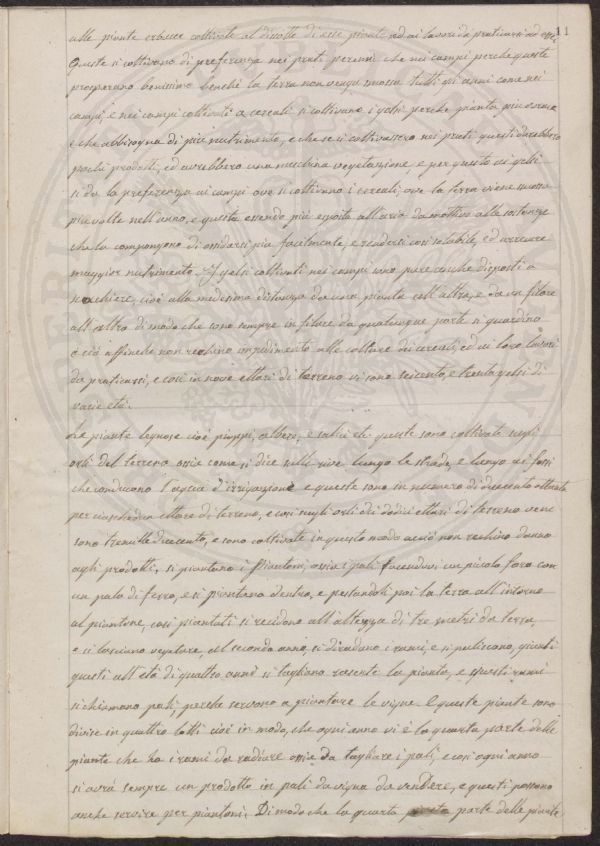 11
alle piante erbacee coltivate al disotto di esse piant, ed ai lavori da praticarsi ad esse
Queste si coltivano di preferenza nei prati perenni che nei campi perche queste
prosperano benissimo benchè la terra non venga mossa tutti gli anni come nei
campi, e nei campi coltivati a cereali si coltivano i gelsi perche pianta più
e che abbisogna di più nutrimento, e che se si coltivassero nei prati questi darebbero
pochi prodotti, ed avrebbero una meschina vegetazione, e per questo ai gelsi
si da la preferenza ai campi ove si coltivano i cereali, ove la terra viene mossa
più volte nell'anno, e questa essendo più esposta all'aria da mottivo alle sostanze
che la compongono di ossidarsi più facilmente, e rendersi così solubile, ed arrecare
maggior nutrimento. I gelsi coltivati nei campi sono pure anche disposti a
scachiere, cioè alla medesima distanza da una pianta coll'altra, e da un filare
all'altro di modo che sono sempre in filare da qualunque parte si guardino
e ciò affinche non rechino impedimento alle colture dei cereali, ed ai loro lavori
da praticarsi, e così in nove ettari di terreno vi sono seicento, e trenta gelsi di
varie età.
Le piante legnose cioè pioppi, albero, e salici etc queste sono coltivate sugli
orli del terreno ossia come si dice sulle rive lungo le strade, e lungo ai fossi
che conducono l'acqua d'irrigazione e queste sono in numero di duecento ottanta
per ciaschedun ettare di terreno, e così sugli orli di dodici ettari di terreno vene
sono tremille duecento, e sono coltivate in questo modo acciò non rechino danno
agli prodotti, si piantano i piantoni, ossia i pali facendovi un piccolo foro con
un palo di ferro, e si piantano dentro, e pestandoli poi la terra all'intorno
al piantone, così piantati si recidono all'altezza di tre metri da terra,
e si lasciano vegetare, al secondo anno, si diradano i rami, e si puliscono, giunti
questi all'età di quattro anni si tagliano rasente la pianta, e questi rami
si chiamano pali, perche servono a piantare le vigne. E queste piante sono
divise in quattro lotti cioè in modo, che ogni anno vi è la quarta parte delle
piante che ha i rami da radiare ossia da tagliare i pali, e così ogni anno
si avrà sempre un prodotto in pali da vigna da vendere, e questi possono
anche servire per piantoni; Di modo che la quarta parte delle piante